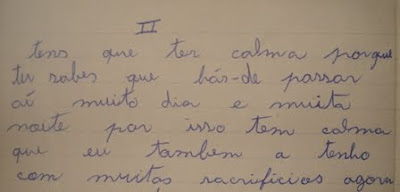 II
tens que ter calma porque
tu sabes que hás-de passar
aí muito dia e muita
noite por isso tem calma
que eu tambem a tenho
com muitos sacrificios agora